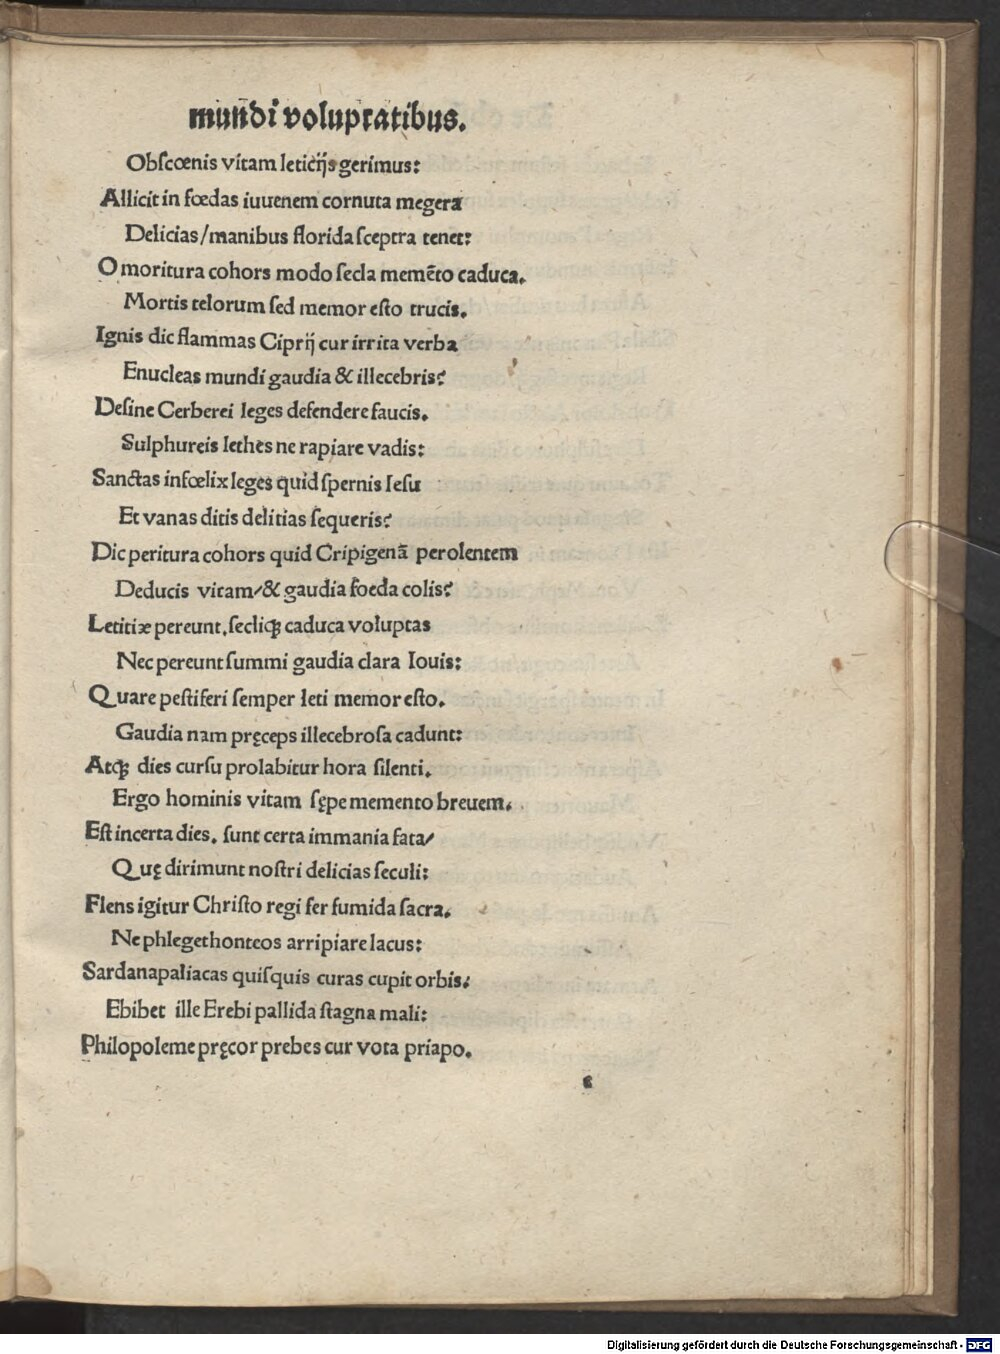 mundi voluptatibus.
Obſcœnis vitam leticijs gerimus:
Allicit in fœdas iuuenem cornuta megera
Delicias/manibus florida ſceptra tenet:
O moritura cohors modo ſecla memēto caduca.
Mortis telorum ſed memor eſto trucis.
Ignis dic flammas Ciprij cur irrita verba
Enucleas mundi gaudia & illecebris?
Deſine Cerberei leges defendere faucis.
Sulphureis lethes ne rapiare vadis:
Sanctas infœlix leges quid ſpernis Ieſu
Et vanas ditis delitias ſequeris?
Dic peritura cohors quid Cripigenā perolentem
Deducis vitam/& gaudia foeda colis?
Letitiæ pereunt.ſecliqꝫ caduca voluptas
Nec pereunt ſummi gaudia clara Iouis:
Quare peſtiferi ſemper leti memor eſto.
Gaudia nam pręceps illecebroſa cadunt:
Atqꝫ dies curſu prolabitur hora ſilenti.
Ergo hominis vitam ſępe memento breuem.
Eſt incerta dies. ſunt certa immania fata/
Quę dirimunt noſtri delicias ſeculi:
Flens igitur Chriſto regi fer fumida ſacra.
Ne phlegethonteos arripiare lacus:
Sardanapaliacas quiſquis curas cupit orbis:
Ebibet ille Erebi pallida ſtagna mali:
Philopoleme pręcor prebes cur vota priapo.
c
Digitalisierung gefördert durch die Deutsche Forschungsgemeinschaft - DFG